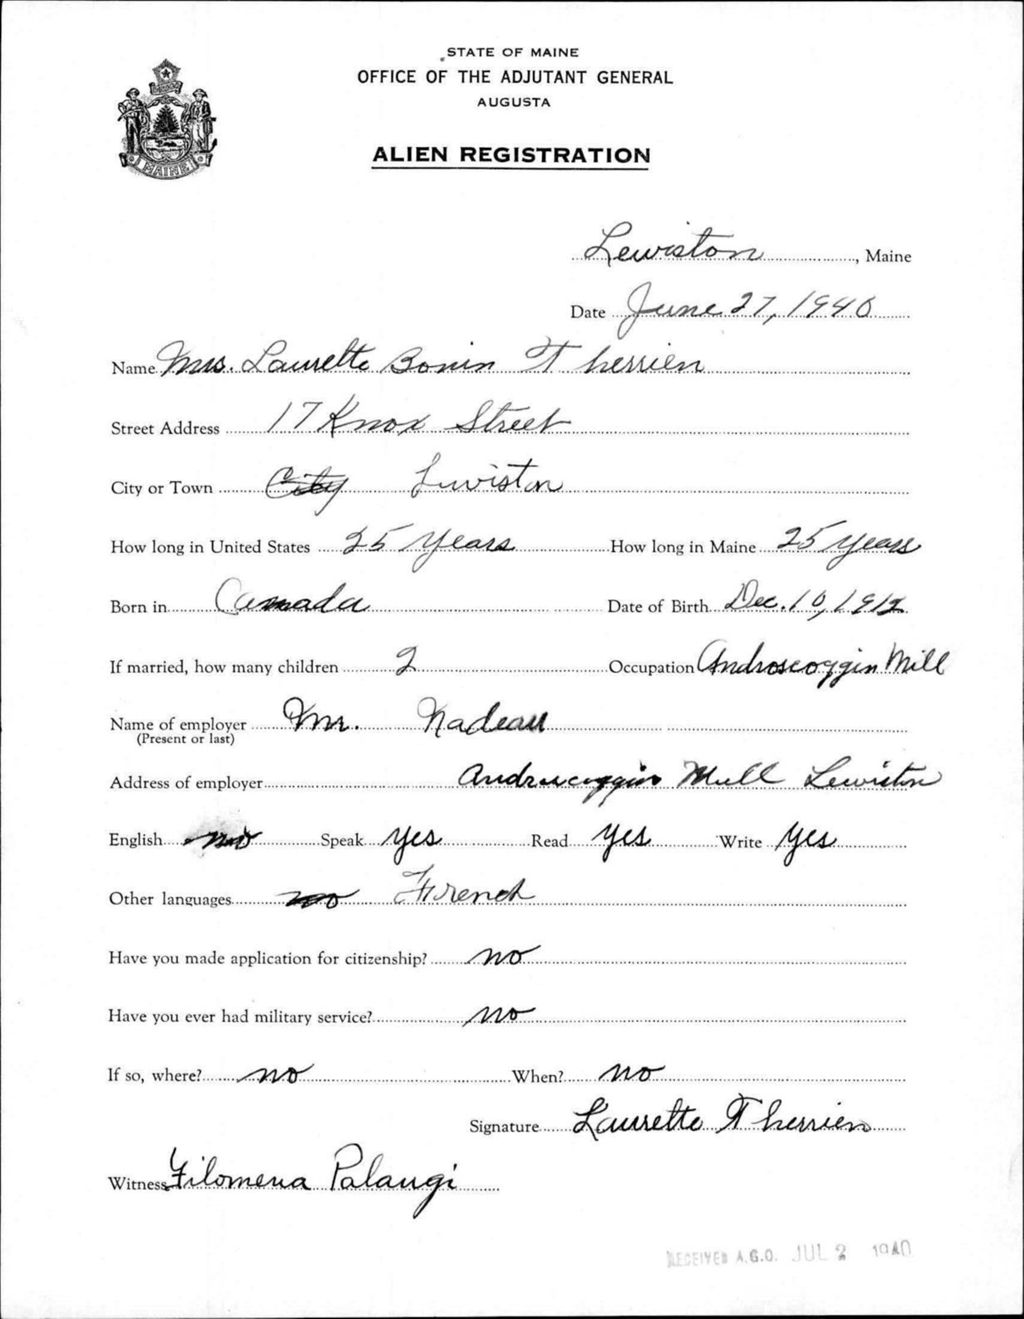 STATE OF MAINE
OFFICE OF THE ADJUTANT GENERAL
AUGUSTA
ALIEN REGISTRATION
MAINE
Lewiston, Maine
Date June 27, 1940
Name Mrs. Laurette Bonin Therrien
Street Address 17 Knox Street
City or Town City Lewiston
How long in United States 25 Years How long in Maine 25 years
Born in Canada Date of Birth Dec. 10, 1912
If married, how many children 2 Occupation Androscoggin Mill
Name of employer Mr. Nadeau
(Present or last)
Address of employer Androscoggin Mill Lewiston
English no Speak yes Read yes Write yes
Other languages no French
Have you made application for citizenship? no
Have you ever had military service? no
If so, where? no When? no
Signature Laurette Therrien
Witness Filomena Palangi
RECEIVED A.G.O. JUL 2 1940